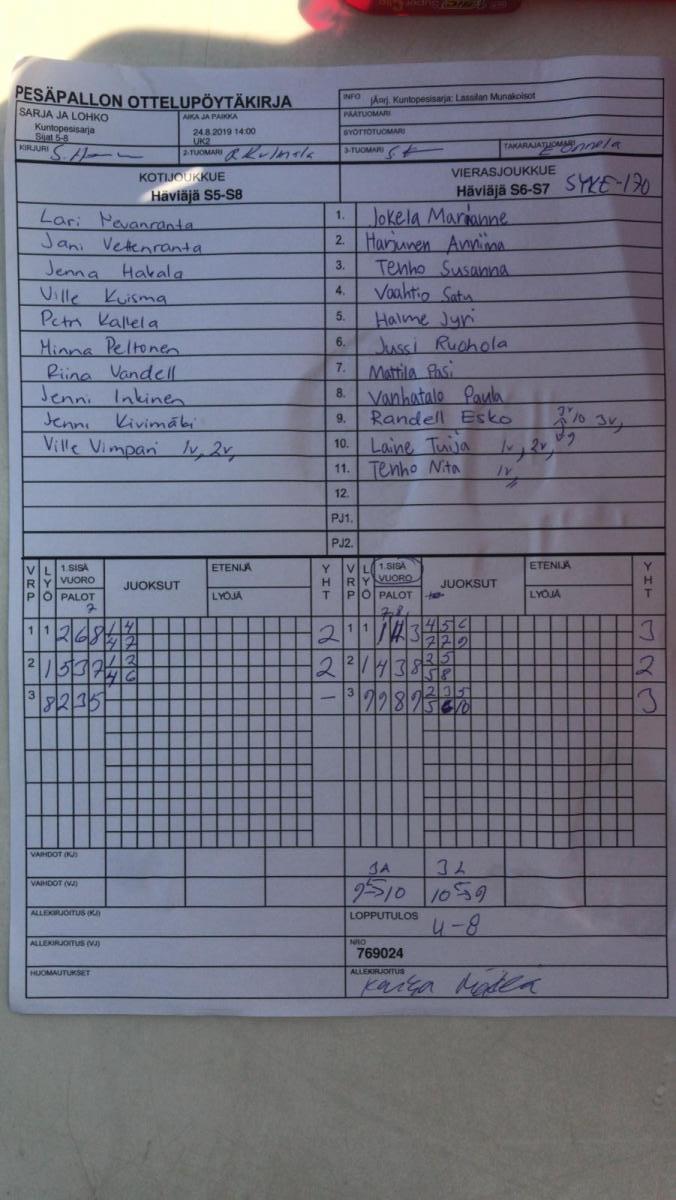 PESÄPALLON OTTELUPÖYTÄKIRJA
INFO jÄorj. Kuntopesisarja: Lassilan Munakoisot
SARJA JA LOHKO
Kuntopesisarja
Sijat 5-8
AIKA JA PAIKKA
24.8.2019 14:00
UK2
PÄÄTUOMARI
SYÖTTÖTUOMARI
KIRJURI
2-TUOMARI
3-TUOMARI
TAKARAJATUOMARI E Onnela
KOTIJOUKKUE
Häviäjä S5-S8
VIERASJOUKKUE
Häviäjä S6-S7 SYKE-170
Lari Nevanranta 1. Jokela Marianne
Jani Vettenranta 2. Harjunen Anniina
Jenna Hakala 3. Tenho Susanna
Ville Kuisma 4. Vaahtio Satu
Petri Kallela 5. Halme Jyri
Minna Peltonen 6. Jussi Ruohola
Riina Vandell 7. Mattila Pasi
Jenni Inkinen 8. Vanhatalo Paula
Jenni Kivimäki 9. Randell Esko 3v,
Ville Vimpari 1v, 2v, 10. Laine Tuija 1v, 2v,
11. Tenho Nita 1v,
12.
PJ1.
PJ2.
VRP LYÖ 1.SISÄ VUORO PALOT 7 JUOKSUT ETENIJÄ LYÖJÄ YHT
VRP LYÖ 1.SISÄ VUORO PALOT JUOKSUT ETENIJÄ LYÖJÄ YHT
1 1 2 6 8 1 4 2 1 1 3 4 5 6 3
4 7 7 7 9
2 1 5 3 7 1 2 2 2 1 4 3 8 2 5 2
4 6 5 8
3 8 2 3 5 – 3 9 9 8 9 2 3 5 3
5 6 10
VAIHDOT (KJ) 3A 3L
VAIHDOT (VJ) 9 10 10 9
ALLEKIRJOITUS (KJ)
LOPPUTULOS 4-8
ALLEKIRJOITUS (VJ)
NRO
769024
HUOMAUTUKSET
ALLEKIRJOITUS